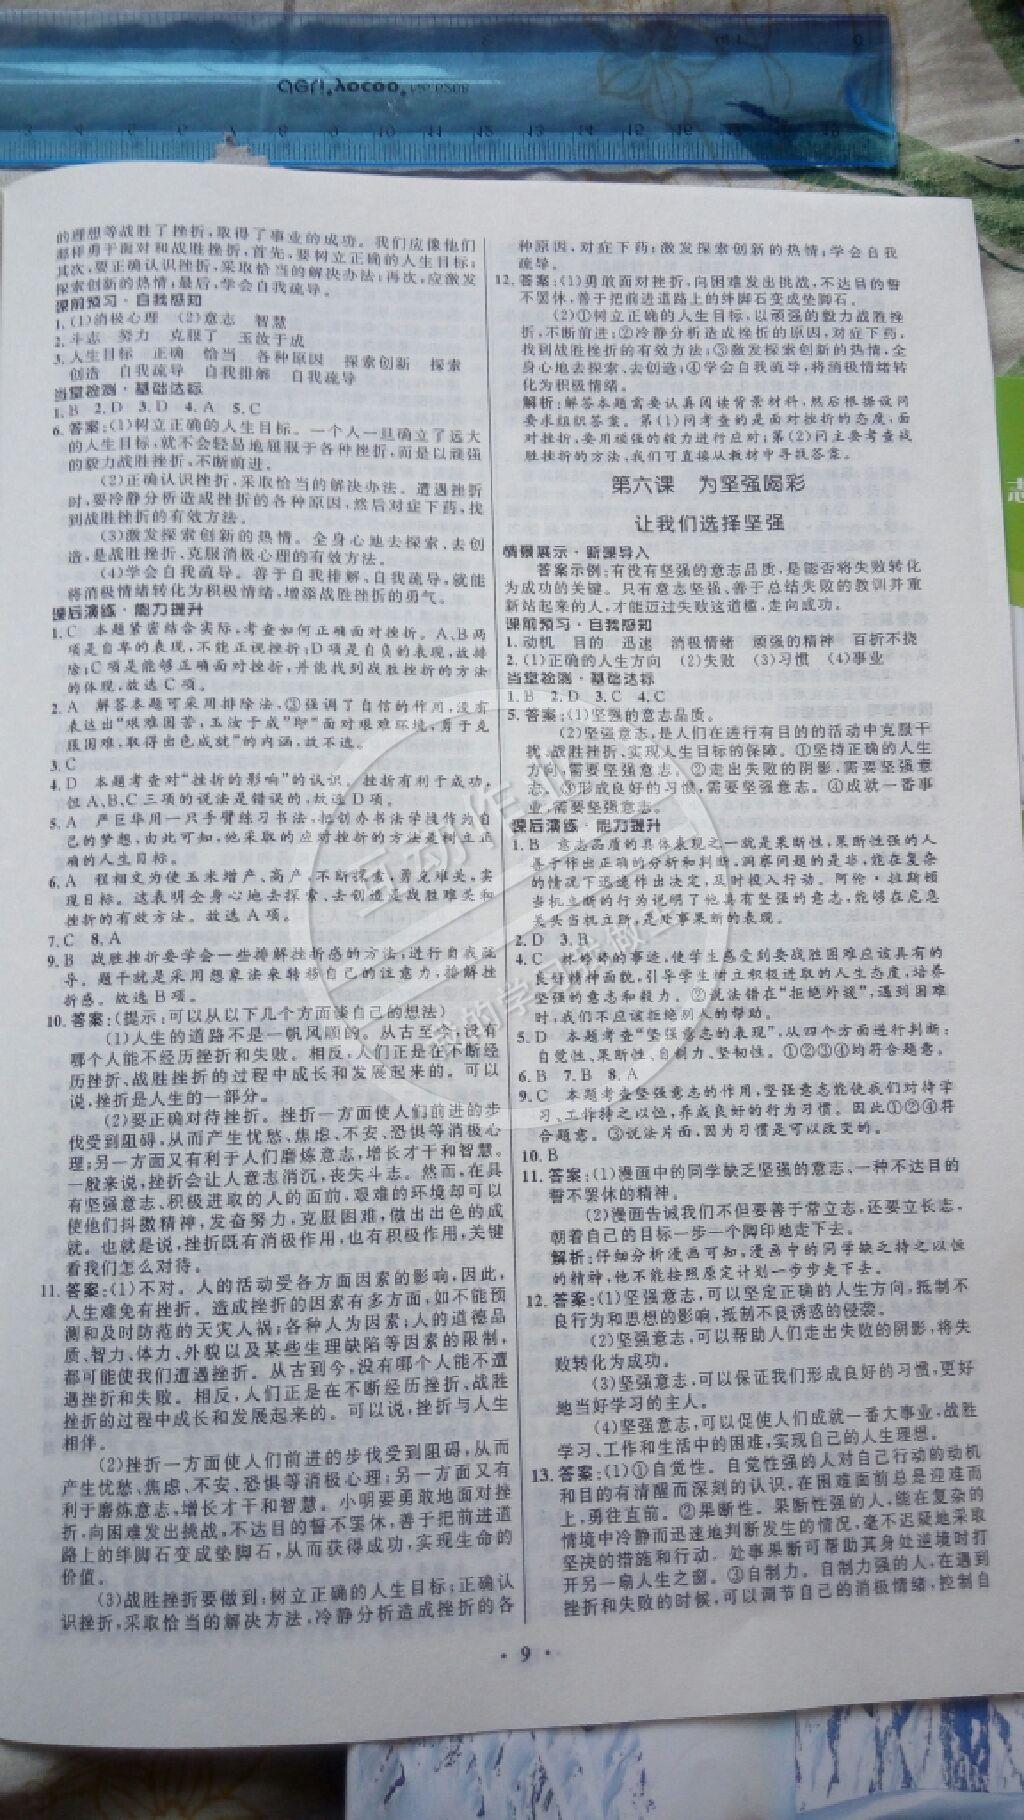 的理想等战胜了挫折,取得了事业的成功。我们应像他们
那样勇于面对和战胜挫折,首先,要树立正确的人生目标;
其次,要正确认识挫折,采取恰当的解决办法;再次,应激发
探索创新的热情;最后,学会自我疏导。
课前预习·自我感知
1. (1)消极心理 (2)意志 智慧
2. 斗志 努力 克服了 玉汝于成
3. 人生目标 正确 恰当 各种原因 探索创新 探索
创造 自我疏导 自我排解 自我疏导
当堂检测·基础达标
1. B 2. D 3. D 4. A 5. C
6. 答案:(1)树立正确的人生目标。一个人一旦确立了远大
的人生目标,就不会轻易地屈服于各种挫折,而是以顽强
的毅力战胜挫折,不断前进。
(2)正确认识挫折,采取恰当的解决办法。遭遇挫折
时,要冷静分析造成挫折的各种原因,然后对症下药,找
到战胜挫折的有效方法。
(3)激发探索创新的热情。全身心地去探索、去创
造,是战胜挫折,克服消极心理的有效方法。
(4)学会自我疏导。善于自我排解、自我疏导,就能
将消极情绪转化为积极情绪,增添战胜挫折的勇气。
课后演练·能力提升
1. C 本题紧密结合实际,考查如何正确面对挫折。A、B两
项是自卑的表现,不能正视挫折;D项是自负的表现,故排
除;C项是能够正确面对挫折,并能找到战胜挫折的方法
的体现,故选C项。
2. A 解答本题可采用排除法,③强调了自信的作用,没有
表达出“艰难困苦,玉汝于成”即“面对艰难环境,勇于克
服困难,取得出色成就”的内涵,故不选。
3. C
4. D 本题考查对“挫折的影响”的认识。挫折有利于成功,
但A、B、C三项的说法是错误的,故选D项。
5. A 严巨华用一只手臂练习书法,把创办书法学校作为自
己的梦想,由此可知,他采取的应对挫折的方法是树立正
确的人生目标。
6. A 程相文为使玉米增产、高产,不断探索,勇克难关,实
现目标。这表明全身心地去探索、去创造是战胜难关和
挫折的有效方法。故选A项。
7. C 8. A
9. B 战胜挫折要学会一些排解挫折感的方法,进行自我疏
导。题干就是采用想象法来转移自己的注意力,排解挫
折感。故选B项。
10. 答案:(提示:可以从以下几个方面谈自己的想法)
(1)人生的道路不是一帆风顺的。从古至今,没有
哪个人能不经历挫折和失败。相反,人们正是在不断经
历挫折、战胜挫折的过程中成长和发展起来的。可以
说,挫折是人生的一部分。
(2)要正确对待挫折。挫折一方面使人们前进的步
伐受到阻碍,从而产生忧愁、焦虑、不安、恐惧等消极心
理;另一方面又有利于人们磨炼意志,增长才干和智慧。
一般来说,挫折会让人意志消沉,丧失斗志。然而,在具
有坚强意志、积极进取的人的面前,艰难的环境却可以
使他们抖擞精神,发奋努力,克服困难,做出出色的成
就。也就是说,挫折既有消极作用,也有积极作用,关键
看我们怎么对待。
11. 答案:(1)不对。人的活动受各方面因素的影响,因此,
人生难免有挫折。造成挫折的因素有多方面,如不能预
测和及时防范的天灾人祸;各种人为因素;人的道德品
质、智力、体力、外貌以及某些生理缺陷等因素的限制,
都可能使我们遭遇挫折。从古到今,没有哪个人能不遭
遇挫折和失败。相反,人们正是在不断经历挫折,战胜
挫折的过程中成长和发展起来的。可以说,挫折与人生
相伴。
(2)挫折一方面使人们前进的步伐受到阻碍,从而
产生忧愁、焦虑、不安、恐惧等消极心理;另一方面又有
利于磨炼意志,增长才干和智慧。小明要勇敢地面对挫
折,向困难发出挑战,不达目的誓不罢休,善于把前进道
路上的绊脚石变成垫脚石,从而获得成功,实现生命的
价值。
(3)战胜挫折要做到:树立正确的人生目标;正确认
识挫折,采取恰当的解决方法,冷静分析造成挫折的各
种原因,对症下药;激发探索创新的热情;学会自我
疏导。
12. 答案:(1)勇敢面对挫折,向困难发出挑战,不达目的誓
不罢休,善于把前进道路上的绊脚石变成垫脚石。
(2)①树立正确的人生目标,以顽强的毅力战胜挫
折,不断前进;②冷静分析造成挫折的原因,对症下药,
找到战胜挫折的有效方法;③激发探索创新的热情,全
身心地去探索、去创造;④学会自我疏导,将消极情绪转
化为积极情绪。
解析:解答本题需要认真阅读背景材料,然后根据设问
要求组织答案。第(1)问考查的是面对挫折的态度,面
对挫折,要用顽强的毅力进行应对;第(2)问主要考查战
胜挫折的方法,我们可直接从教材中寻找答案。
第六课 为坚强喝彩
让我们选择坚强
情景展示·新课导入
答案示例:有没有坚强的意志品质,是能否将失败转化
为成功的关键。只有意志坚强、善于总结失败的教训并重
新站起来的人,才能迈过失败这道槛,走向成功。
课前预习·自我感知
1. 动机 目的 迅速 消极情绪 顽强的精神 百折不挠
2. (1)正确的人生方向 (2)失败 (3)习惯 (4)事业
当堂检测·基础达标
1. B 2. D 3. C 4. C
5. 答案:(1)坚强的意志品质。
(2)坚强意志,是人们在进行有目的的活动中克服干
扰、战胜挫折、实现人生目标的保障。①坚持正确的人生
方向,需要坚强意志。②走出失败的阴影,需要坚强意
志。③形成良好的习惯,需要坚强意志。④成就一番事
业,需要坚强意志。
课后演练·能力提升
1. B 意志品质的具体表现之一就是果断性,果断性强的人
善于作出正确的分析和判断,洞察问题的是非,能在复杂
的情况下迅速作出决定,及时投入行动。阿伦·拉斯顿
当机立断的行为说明了他具有坚强的意志,能够在危急
关头当机立断,是处事果断的表现。
2. D 3. B
4. C 林婷婷的事迹,使学生感受到要战胜困难应该具有的
良好精神面貌,引导学生树立积极进取的人生态度,培养
坚强的意志和毅力。②说法错在“拒绝外援”,遇到困难
时,我们不应该拒绝别人的帮助。
5. D 本题考查“坚强意志的表现”,从四个方面进行判断:
自觉性、果断性、自制力、坚韧性。①②③④均符合题意。
6. B 7. B 8. A
9. C 本题考查坚强意志的作用,坚强意志能使我们对待学
习、工作持之以恒,养成良好的行为习惯。因此①②④符
合题意。③说法片面,因为习惯是可以改变的。
10. B
11. 答案:(1)漫画中的同学缺乏坚强的意志、一种不达目的
誓不罢休的精神。
(2)漫画告诫我们不但要善于常立志,还要立长志,
朝着自己的目标一步一个脚印地走下去。
解析:仔细分析漫画可知,漫画中的同学缺乏持之以恒
的精神,他不能按照原定计划一步步走下去。
12. 答案:(1)坚强意志,可以坚定正确的人生方向,抵制不
良行为和思想的影响,抵制不良诱惑的侵袭。
(2)坚强意志,可以帮助人们走出失败的阴影,将失
败转化为成功。
(3)坚强意志,可以保证我们形成良好的习惯,更好
地当好学习的主人。
(4)坚强意志,可以促使人们成就一番大事业,战胜
学习、工作和生活中的困难,实现自己的人生理想。
13. 答案:(1)①自觉性。自觉性强的人对自己行动的动机
和目的有清醒而深刻的认识,在困难面前总是迎难而
上,勇往直前。②果断性。果断性强的人,能在复杂的
情境中冷静而迅速地判断发生的情况,毫不迟疑地采取
坚决的措施和行动。处事果断可帮助其身处逆境时打
开另一扇人生之窗。③自制力。自制力强的人,在遇到
挫折和失败的时候,可以调节自己的消极情绪,控制自
· 9 ·